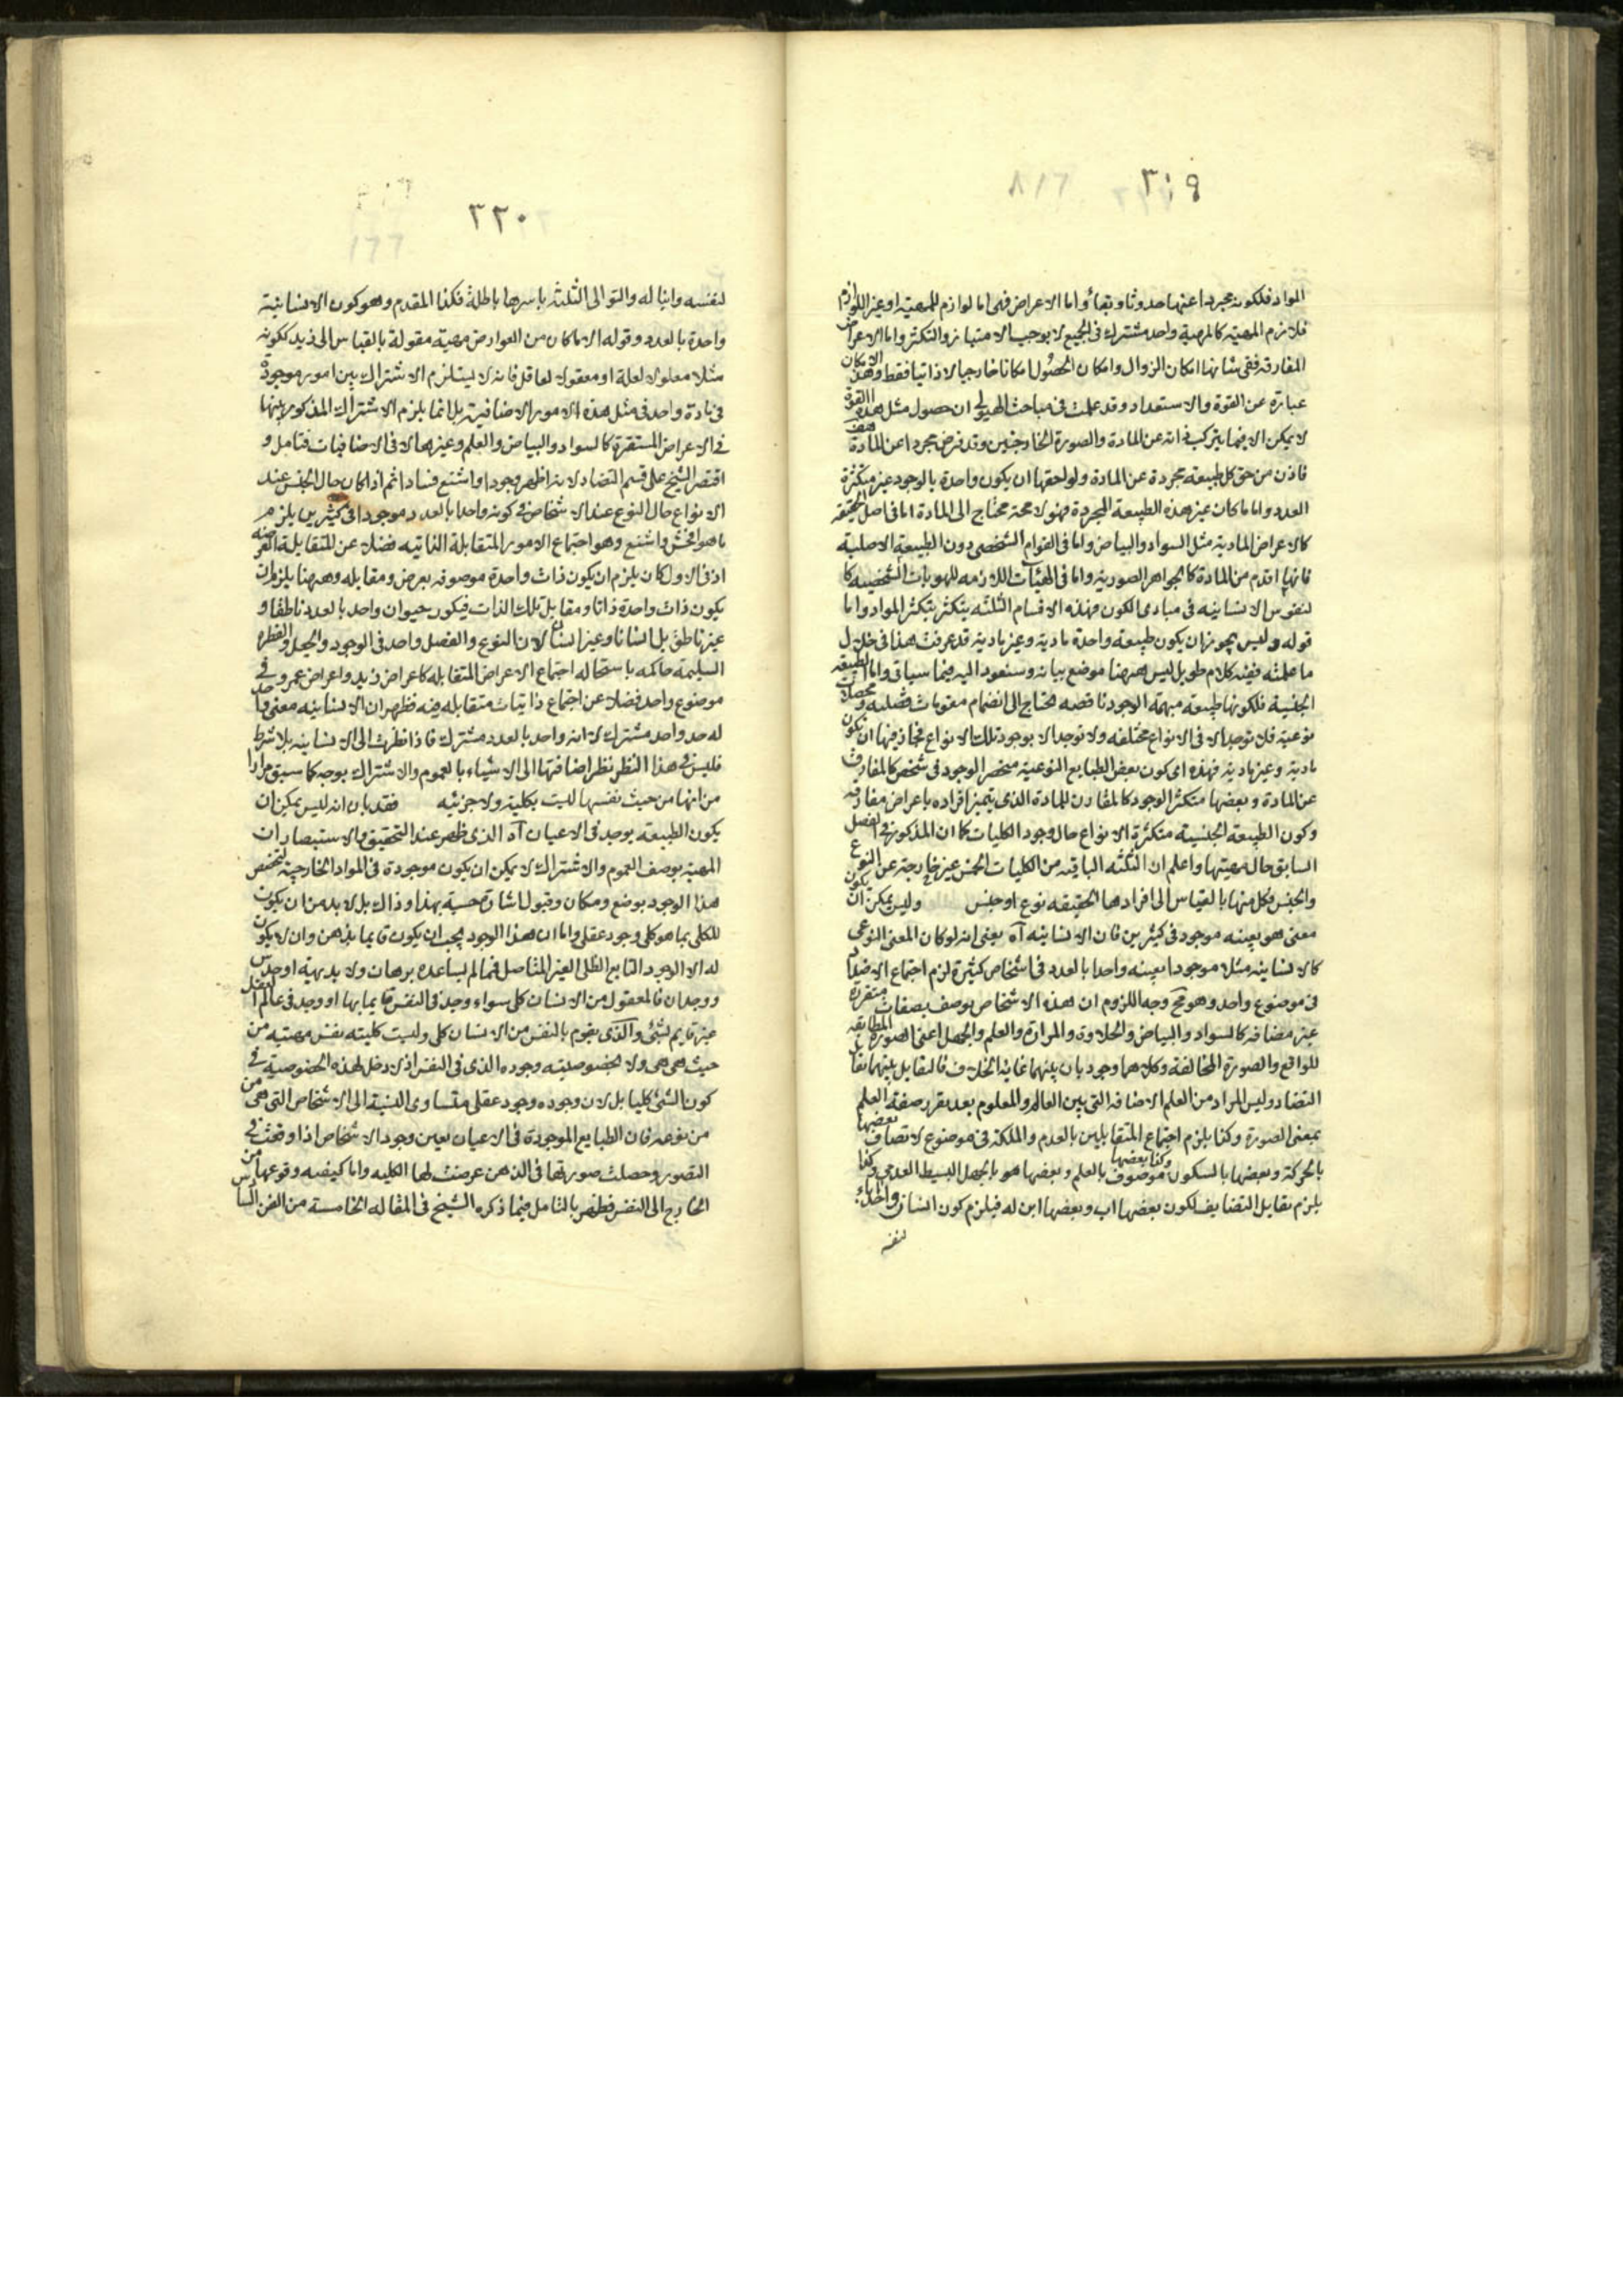 ٣١٩
المواد فلكونه مجردا عنها حدوثا وبقاء واما الاعراض فهى اما لوازم للمهية او غير اللوازم
فلازم المهية كالمهية واحد مشترك فى الجميع لا يوجب الامتياز والتكثر واما الاعراض
المفارقة ففى شانها امكان الزوال وامكان الحصول امكانا خارجيا لا ذاتيا فقط وهذا الامكان
عبارة عن القوة والاستعداد وقد علمت فى مباحث الهيولى ان حصول مثل هذه القوة
لا يمكن الا فيما يتركب ذاته عن المادة والصورة الخارجتين وقد فرض مجردا عن المادة هف
فاذن من حق كل طبيعة مجردة عن المادة ولواحقها ان يكون واحدة بالوجود غير متكثرة
العدد واما ما كان غير هذه الطبيعة المجردة فهو لا محة محتاج الى المادة اما فى اصل الحقيقة
كالاعراض المادية مثل السواد والبياض واما فى القوام الشخصى دون الطبيعة الاصلية
فانها اقدم من المادة كالجواهر الصورية واما فى الهيئات اللازمه للهويات الشخصيه كا
لنفوس الانسانيه فى مبادى الكون فهذه الاقسام الثلثه يتكثر بتكثر المواد واما
قوله وليس يجوز ان يكون طبيعة واحدة مادية وغير مادية قد عرفت هذا فى خلال
ما علمته ففيه كلام طويل ليس ههنا موضع بيانه وسنعود اليه فيما سياتى واما الطبيعة
الجنسية فلكونها طبيعة مبهمة الوجود ناقصه تحتاج الى انضمام مقومات فصليه ومحصلات
نوعية فلا توجد الا فى الانواع مختلفه ولا توجد الا بوجود تلك الانواع فجاز فيها ان يكون
مادية وغير مادية فهذه اى كون بعض الطبايع النوعية منحصر الوجود فى شخص كالمفارق
عن المادة وبعضها متكثر الوجود كالمقارن للمادة الذى يتميز افراده باعراض مفارقه
وكون الطبيعة الجنسية متكثرة الانواع حال وجود الكليات كما ان المذكور فى الفصل
السابق حال مهيتها واعلم ان الثلثه الباقيه من الكليات الخمس غير خارجة عن النوع
والجنس فكل منها بالقياس الى افرادها الحقيقه نوع او جنس وليس يمكن ان يكون
معنى هو بعينه موجود فى كثيرين فان الانسانيه آه يعنى انه لو كان المعنى النوعى
كالانسانية مثلا موجودا بعينه واحدا بالعدد فى اشخاص كثيرة لزم اجتماع الاضداد
فى موضوع واحد وهو مح وجه اللزوم ان هذه الاشخاص يوصف بصفات متقررة
غير مضافه كالسواد والبياض والحلاوة والمرارة والعلم والجهل اعنى الصورة المطابقه
للواقع والصورة المخالفة وكلاهما وجوديان بينهما غاية الخلاف فالتقابل بينهما تقابل
التضاد وليس المراد من العلم الاضافه التى بين العالم والمعلوم بعد تقرر صفة العلم
بمعنى الصورة وكذا يلزم اجتماع المتقابلين بالعدم والملكة فى موضوع لاتصاف بعضها
بالحركة وبعضها بالسكون وكذا بعضها موصوف بالعلم وبعضها هو بالجهل البسيط العدمى وكذا
يلزم تقابل التضايف لكون بعضها اب وبعضها ابن له فيلزم كون انسان واحد اباء
لنفسه
٣٢٠
لنفسه وابنا له والتوالى الثلثه باسرها باطلة فكذا المقدم وهو كون الانسانية
واحدة بالعدد وقوله الا ما كان من العوارض مهية مقولة بالقياس الى زيد ككونه
مثلا معلولا لعلة او معقولا لعاقل فانه لا يستلزم الاشتراك بين امور موجودة
فى مادة واحد فى مثل هذه الامور الاضافية بل انما يلزم الاشتراك المذكور بينها
فى الاعراض المستقرة كالسواد والبياض والعلم وغيرهما لا فى الاضافيات فتامل و
اقتصر الشيخ على قسم التضاد لانه اظهر وجودا واشنع فسادا ثم اذا كان حال الجنس عند
الانواع حال النوع عند الاشخاص فى كونه واحدا بالعدد موجودا فى كثيرين يلزم
ما هو افحش واشنع وهو اجتماع الامور المتقابلة الذاتيه فضلا عن المتقابلة العرضيه
اذ فى الاول كان يلزم ان يكون ذات واحدة موصوفه بعرض ومقابله وههنا يلزم ان
يكون ذات واحدة ذاتا ومقابل تلك الذات فيكون حيوان واحد بالعدد ناطقا و
غير ناطق بل انسانا وغير انسان لان النوع والفصل واحد فى الوجود والجعل والفطره
السليمة حاكمه باستحاله اجتماع الاعراض المتقابله كاعراض زيد واعراض عمرو فى
موضوع واحد فضلا عن اجتماع ذاتيات متقابله فيه فظهر ان الانسانيه معنى واحد
له حد واحد مشترك لا انه واحد بالعدد مشترك فاذا نظرت الى الانسانيه بلا شرط
فليس فى هذا النظر نظر اضافتها الى الاشياء بالعموم والاشتراك بوجه كما سبق مرارا
من انها من حيث نفسها ليست بكلية ولا جزئيه فقد بان انه ليس يمكن ان
يكون الطبيعه يوجد فى الاعيان آه الذى ظهر عند التحقيق والاستبصار ان
المهية بوصف العموم والاشتراك لا يمكن ان يكون موجودة فى المواد الخارجية لتخصص
هذا الوجود بوضع ومكان وقبول اشارة حسية بهذا وذاك بل لا بد من ان يكون
للكلى بما هو كلى وجود عقلى واما ان هذا الوجود يجب ان يكون قايما بذهن وان لا يكون
له الا الوجود التابع الظلى الغير المتاصل فمما لم يساعده برهان ولا بديهة او حدس
ووجدان فالمعقول من الانسان كلى سواء وجد فى النفس قايما بها او وجد فى عالم العقل
غير قايم بشئ والذى يقوم بالنفس من الانسان كلى وليست كليته نفس مهيته من
حيث هى هى ولا لخصوصيته وجوده الذى فى النفس اذ لا دخل لهذه الخصوصية فى
كون الشئ كليا بل لان وجوده وجود عقلى متساوى النسبة الى الاشخاص التى هى من
من نوعه فان الطبايع الموجودة فى الاعيان بعين وجود الاشخاص اذا وقعت فى
التصور وحصلت صورتها فى الذهن عرضت لها الكليه واما كيفيه وقوعها من
الخارج الى النفس فظهر بالتامل فيما ذكره الشيخ فى المقاله الخامسة من الفن السادس